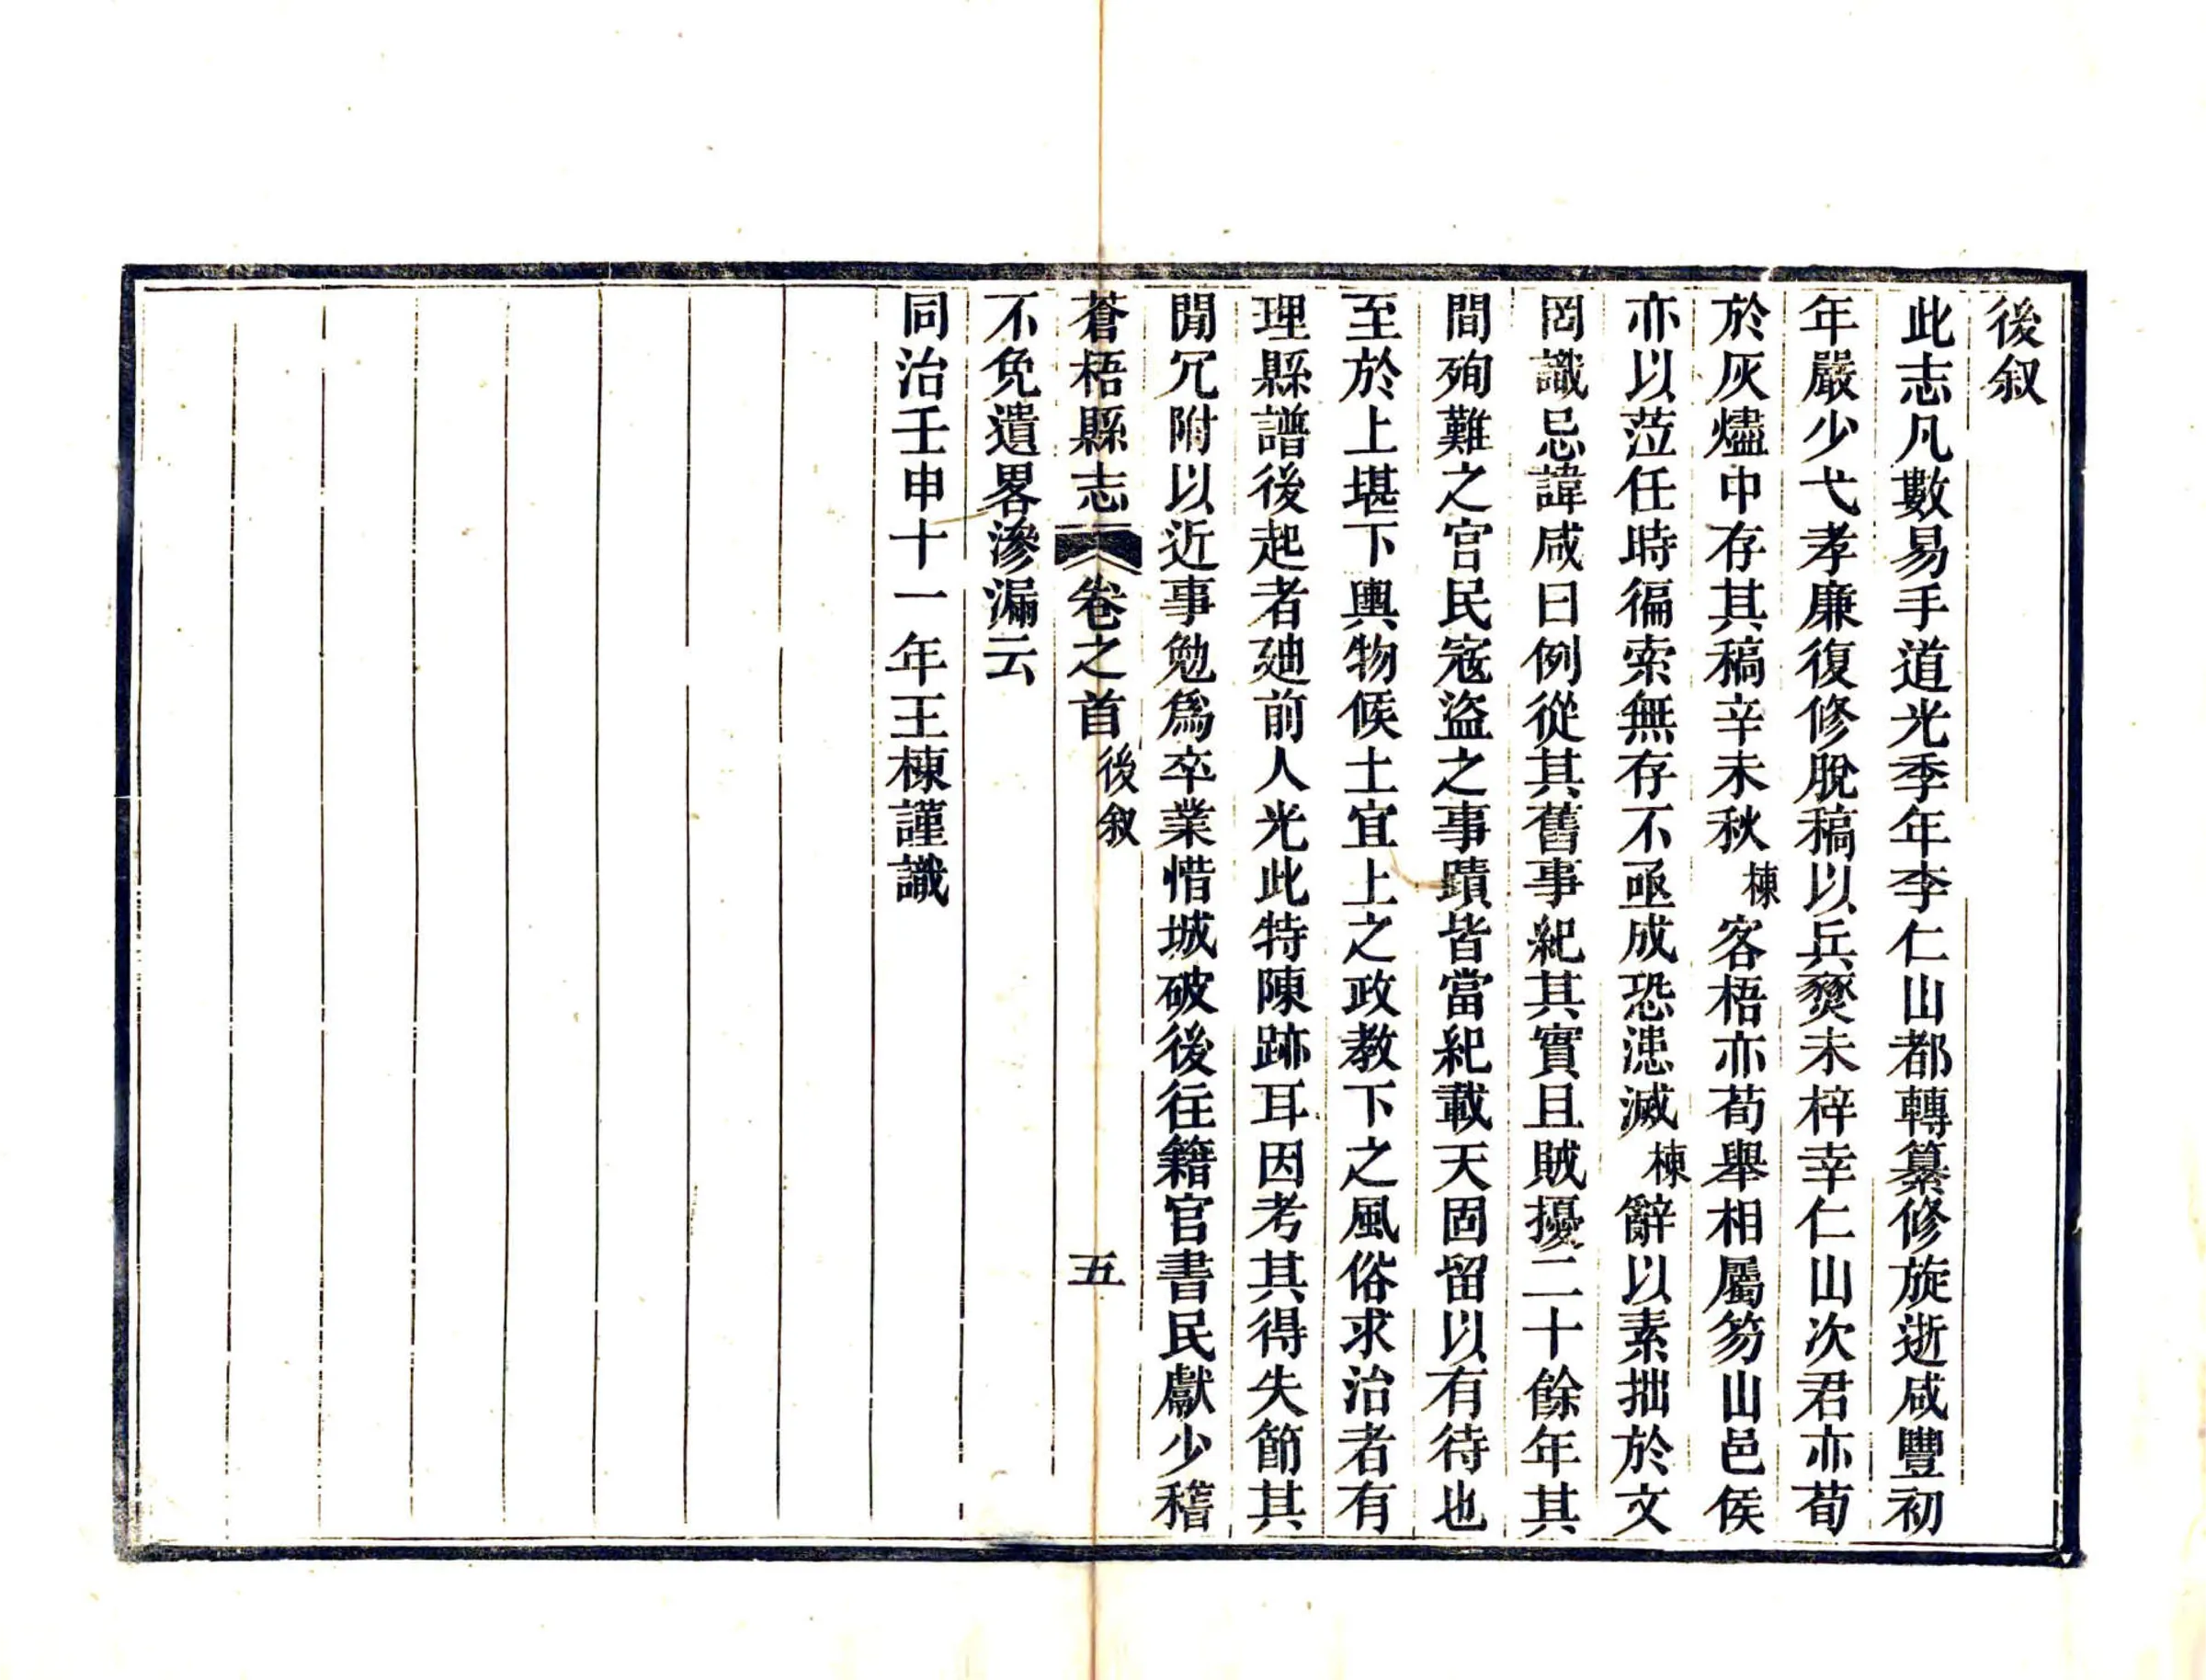 後叙
此志凡數易手道光季年李仁山都轉纂修旋逝咸豐初
年嚴少弋孝廉復修脫稿以兵燹未梓幸仁山次君亦荀
於灰燼中存其稿辛未秋棟客梧亦荀舉相屬笏山邑侯
亦以蒞任時徧索無存不亟成恐漶滅棟辭以素拙於文
罔識忌諱咸曰例從其舊事紀其實且賊擾二十餘年其
間殉難之官民寇盜之事蹟皆當紀載天固留以有待也
至於上堪下輿物候土宜上之政教下之風俗求治者有
理縣譜後起者廸前人光此特陳跡耳因考其得失節其
閒冗附以近事勉爲卒業惜城破後往籍官書民獻少稽
蒼梧縣志 卷之首 後叙 五
不免遺畧滲漏云
同治壬申十一年王棟謹識